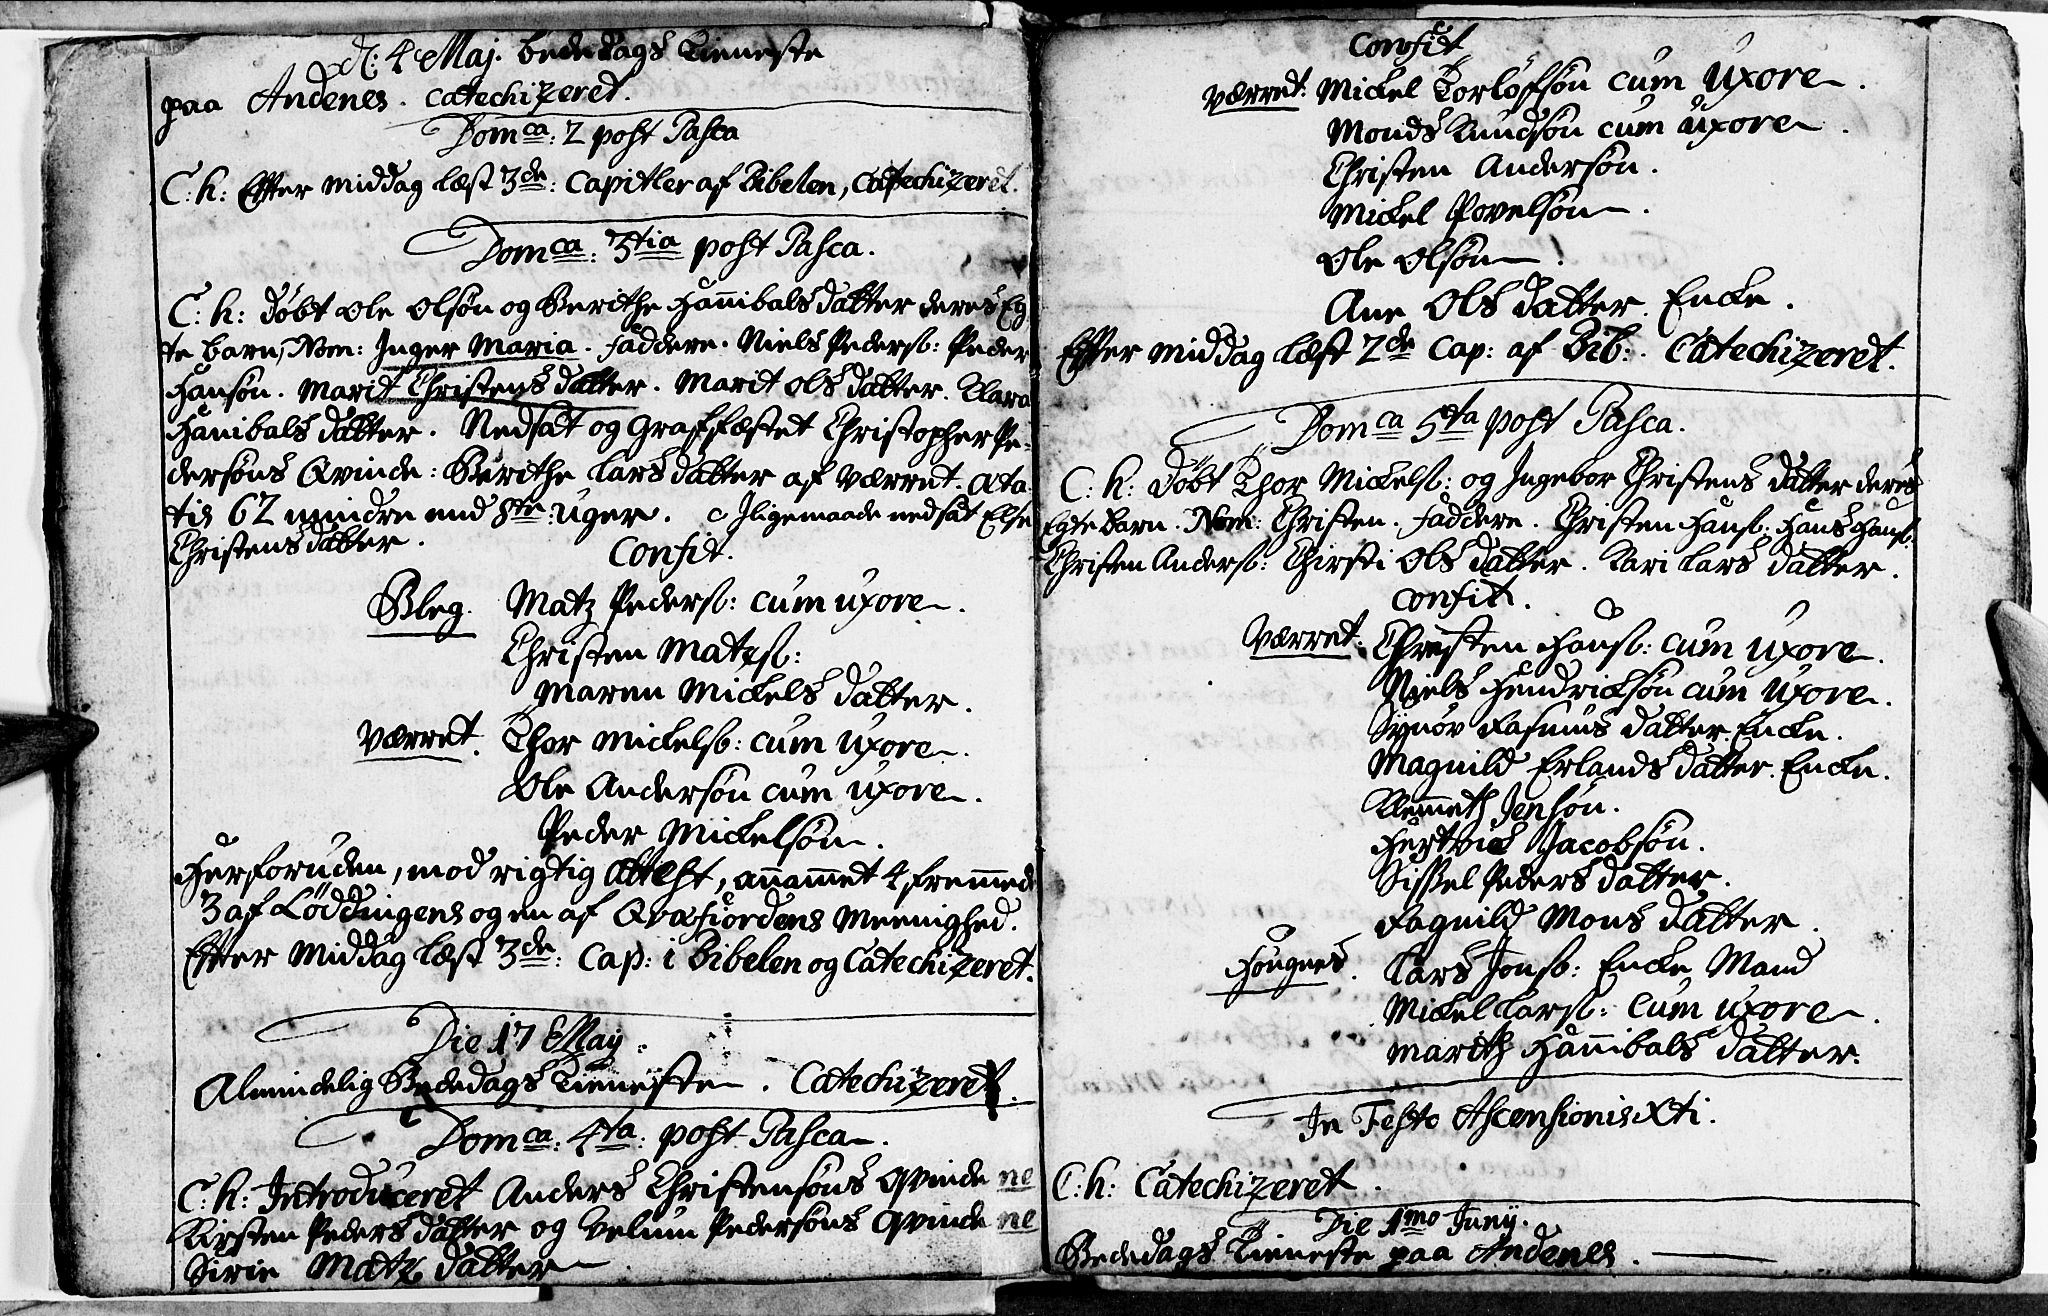 d: 4 Maj. bededags Tieneste
paa Andenes. Catechizeret.
Domca: 2 post Pasca
C: h: Effter middag læst 3de: Capitler af Bibelen, Catechizeret.
Domca: 3tia post Pasca.
C: h: døbt Ole Olsøn og Berithe Hannibals datter deres Eg
te barn, Nom: Inger Maria. Faddere. Niels Peders: Peder
Hansøn. Marit Christens datter. Marit Ols datter. Clara
Hanibals datter. Nedsat og Graffæstet Christopher Pe-
dersøns Qvinde: Berithe Lars datter af Værret. Æta
tis 62 mindre end 8te: Uger. Iligemaade nedsat Else
Christens datter.
Confit.
Bleg. Matz Peders: cum uxore.
Christen Matzs:
Maren Mickels datter.
Værret. Thor Mickels: cum uxore.
Ole Andersøn cum uxore.
Peder Mickelsøn.
Herforuden, mod rigtig Attest, annammet 4 fremmede
3 af Løddingens og en af Qvæfiordens Meenighed.
Effter Middag læst 3de: Cap: i Bibelen og Catechizeret.
Die 17 Maij.
Almindelig Bededags Tienesten. Catechizeret.
Domca: 4ta: post Pasca.
C: h: Introduceret Anders Christensøns Qvinde ne
Kirsten Peders datter og Velum Pedersøns Qvinde ne
Sirie Matz datter
Confit
Værret. Mickel Torlofsøn cum uxore.
Monds Knudsøn cum uxore.
Christen Andersøn.
Mickel Povelsøn.
Ole Olsøn.
Ane Ols datter. Encke.
Effter middag læst 2de Cap: af Bib:. Catechizeret.
Domca 5ta post Pasca.
C: h: døbt Thor Mickels: og Ingebor Christens datter deres
Egte barn. Nom: Christen. Faddere. Christen Hans: Hans Hans:
Christen Anders: Chirsti Ols datter. Kari Lars datter.
Confit.
Værret. Christen Hans: cum uxore.
Niels Hendricksøn cum uxore.
Synøv Rasmus datter. Encke.
Magnild Erlands datter. Encke.
Klemmeth Jensøn.
Hertvick Jacobsøn.
Sissel Peders datter.
Ragnild Mons datter.
Hougnes. Lars Jons: Encke Mand
Mickel Lars: cum uxore.
Marith Hannibals datter.
In Festo Ascensionis Xti.
C: h: Catechizeret.
Die 1mo Junij.
Bededags Tieneste paa Andenes.